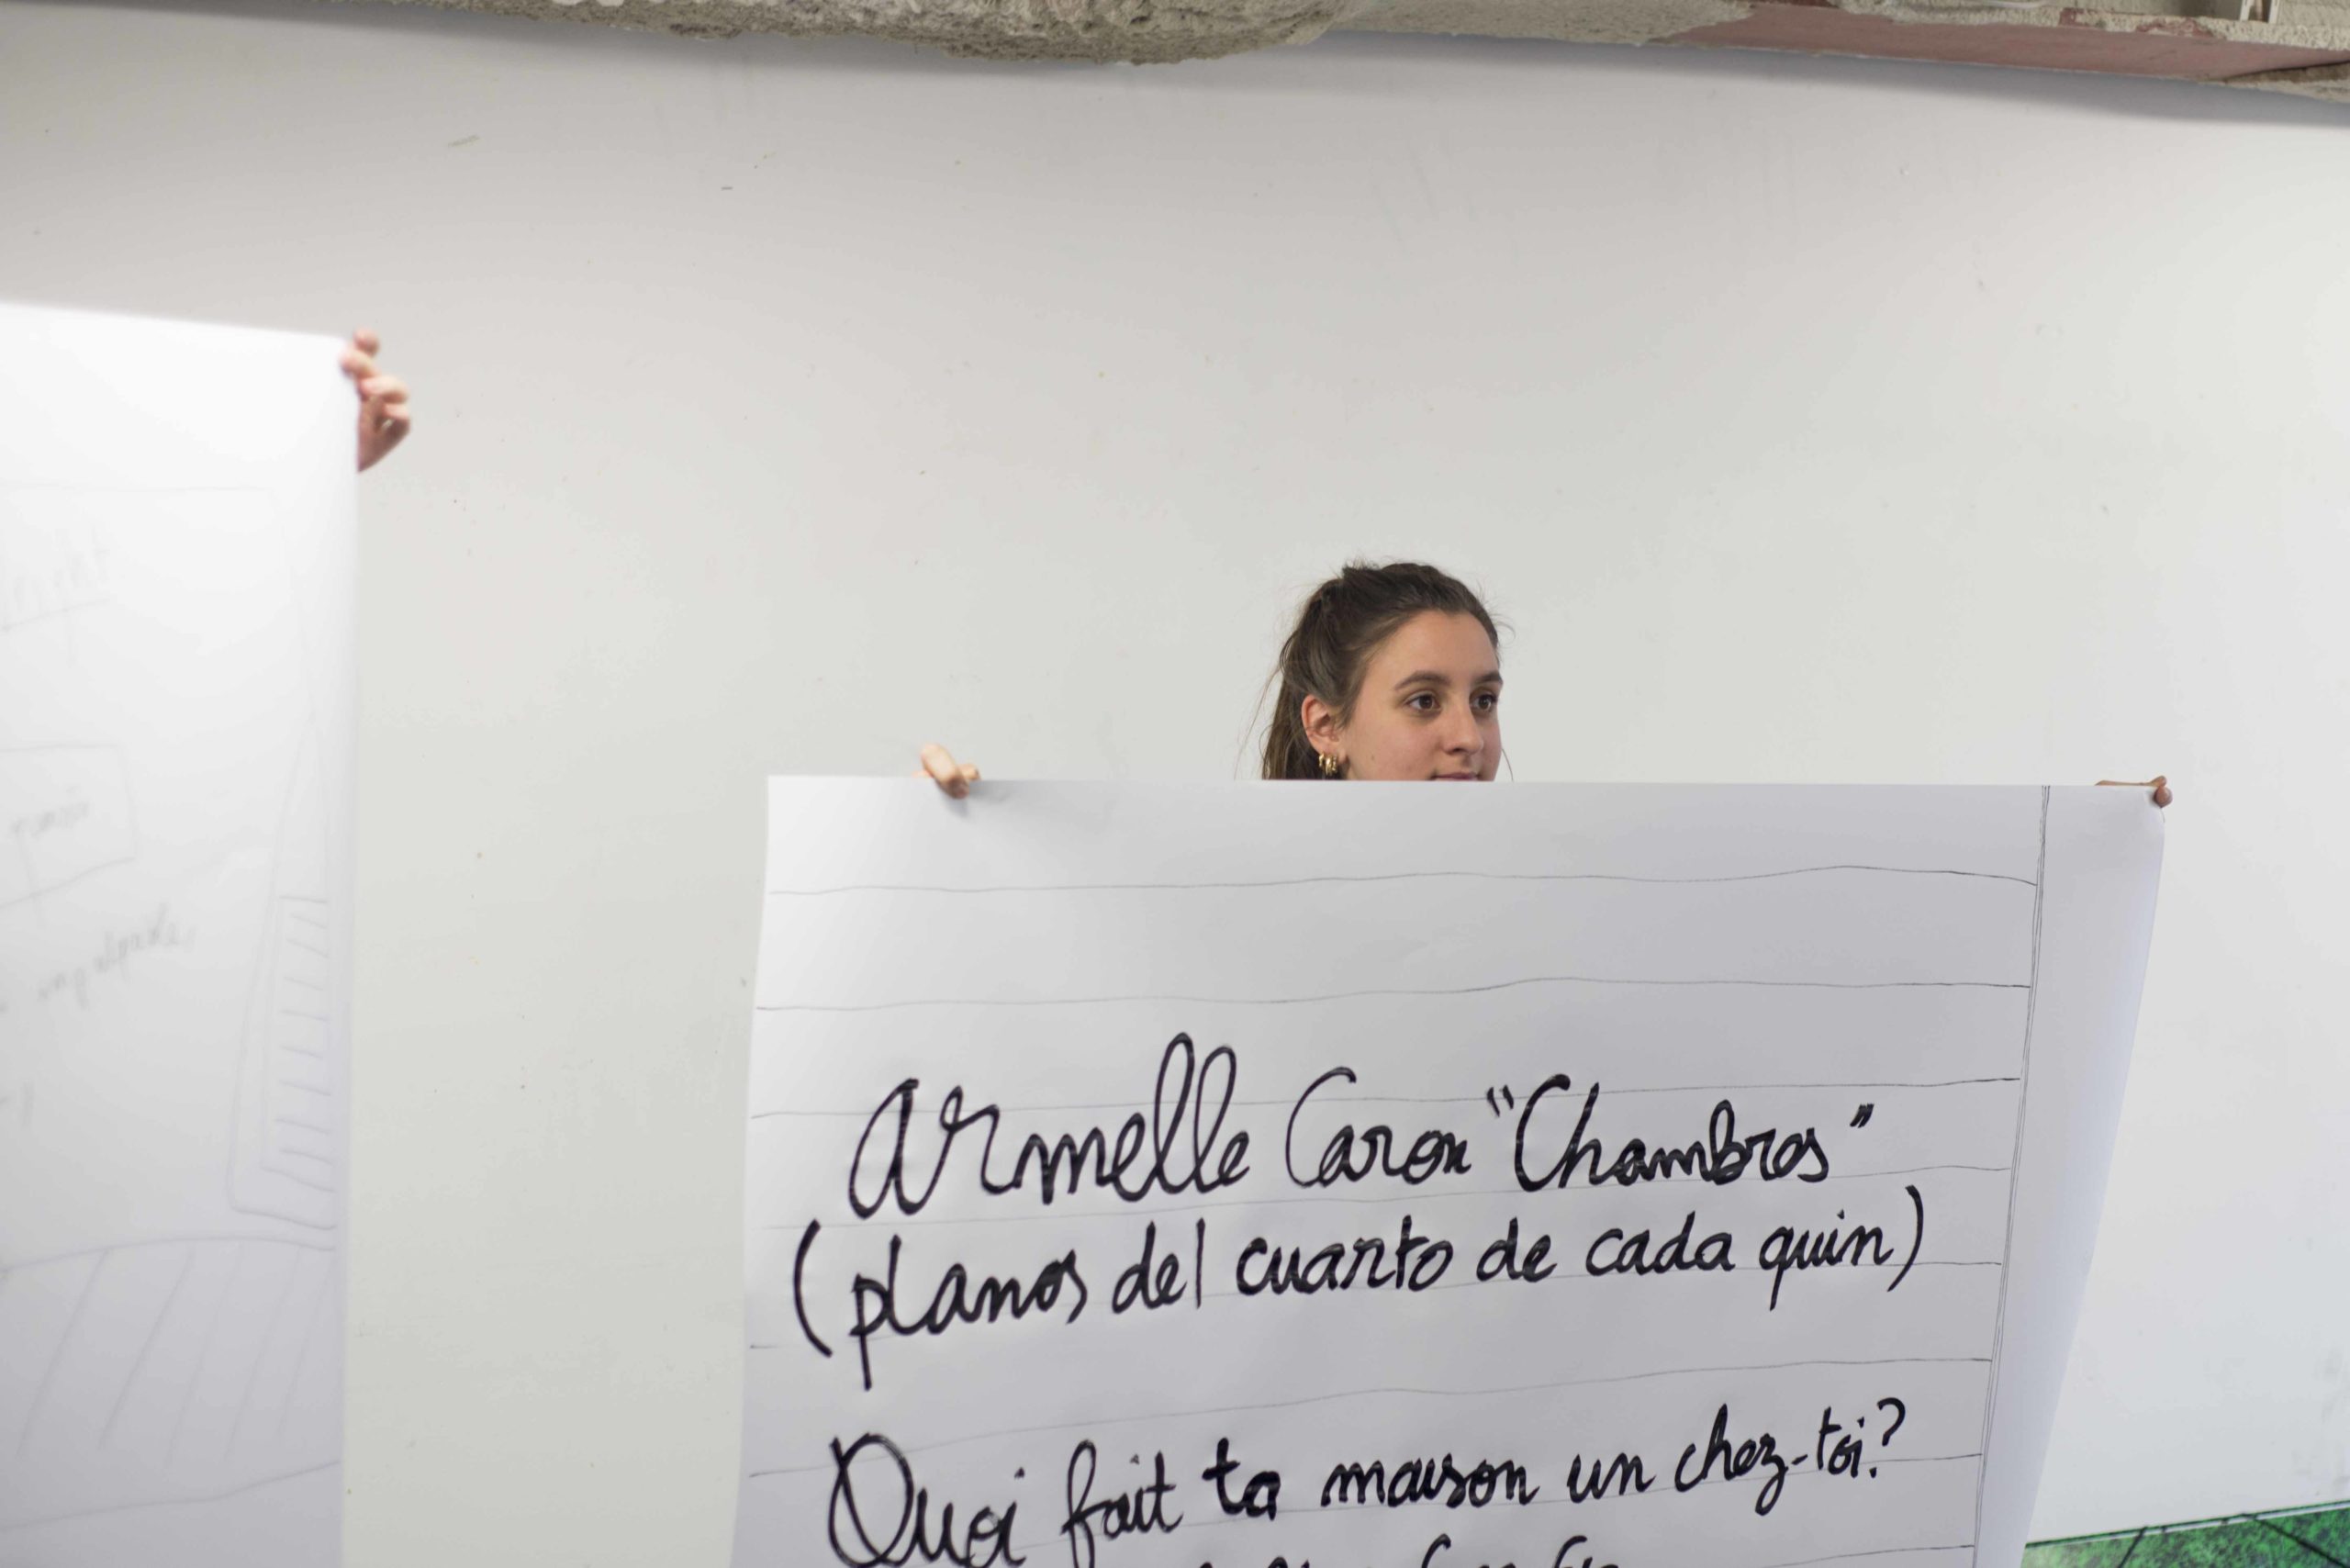 Armelle Caron "Chambres"
(planos del cuarto de cada quin)
Quoi fait ta maison un chez-toi?